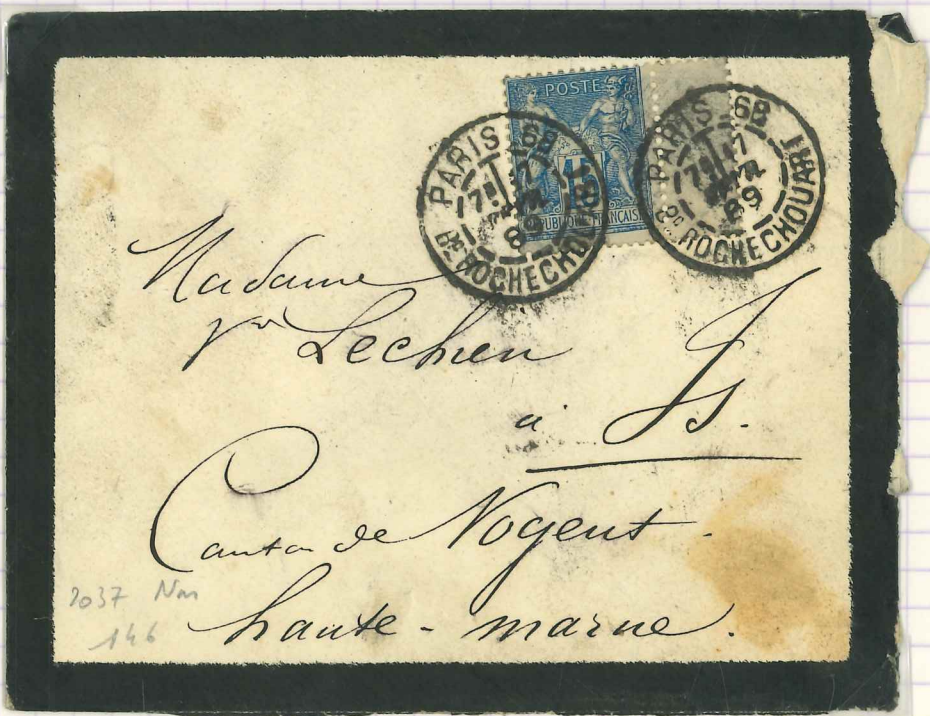 POSTE
15
REPUBLIQUE FRANÇAISE
PARIS 68
17
89
Bd ROCHECHOUART
PARIS 68
17
89
Bd ROCHECHOUART
Madame
Vve Lechien
à Is.
Canton de Nogent
haute-marne.
2037
146